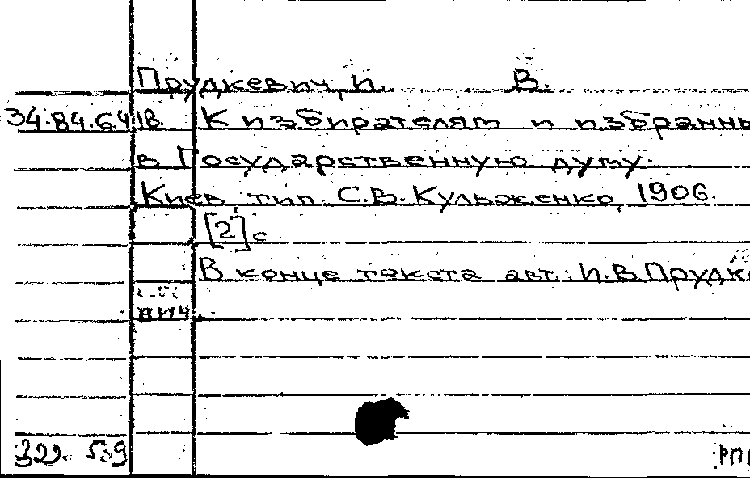 Прудкевич, И. В.
34.84.641В К избирателям и избранны
в Государственную думу.
Киев, тип. С.В. Кульженко, 1906.
[2] с
В конце текста авт.: И.В. Прудке
вич.
322. 539
РП